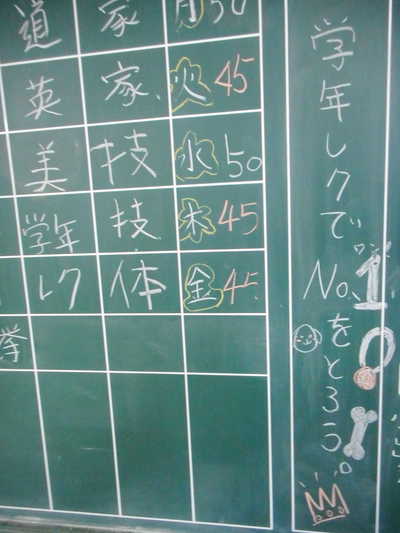 道 家 月 50
英 家 火 45
美 技 水 50
学年 技 木 45
レク 体 金 45
挙
学年レクで
No.1を
ワン
とろう